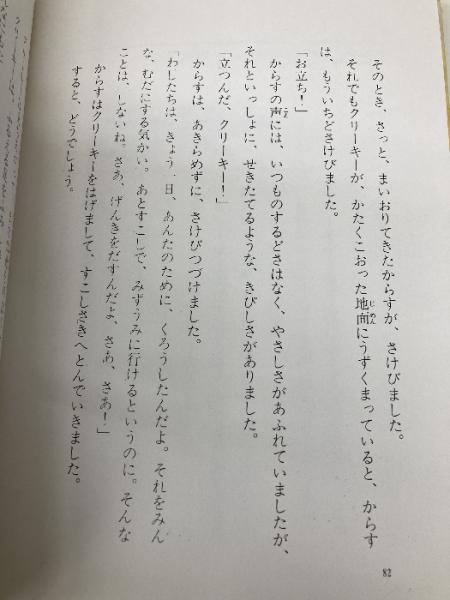 そのとき、さっと、まいおりてきたからすが、さけびました。
それでもクリーキーが、かたくこおった地面にうずくまっていると、からす
は、もういちどさけびました。
「お立ち！」
からすの声には、いつものするどさはなく、やさしさがあふれていましたが、
それといっしょに、せきたてるような、きびしさがありました。
「立つんだ、クリーキー！」
からすは、あきらめずに、さけびつづけました。
「わしたちは、きょう一日、あんたのために、くろうしたんだよ。それをみん
な、むだにする気かい。あとすこしで、みずうみに行けるというのに。そんな
ことは、しないね。さあ、げんきをだすんだよ、さあ、さあ！」
からすはクリーキーをはげまして、すこしさきへとんでいきました。
すると、どうでしょう。
82